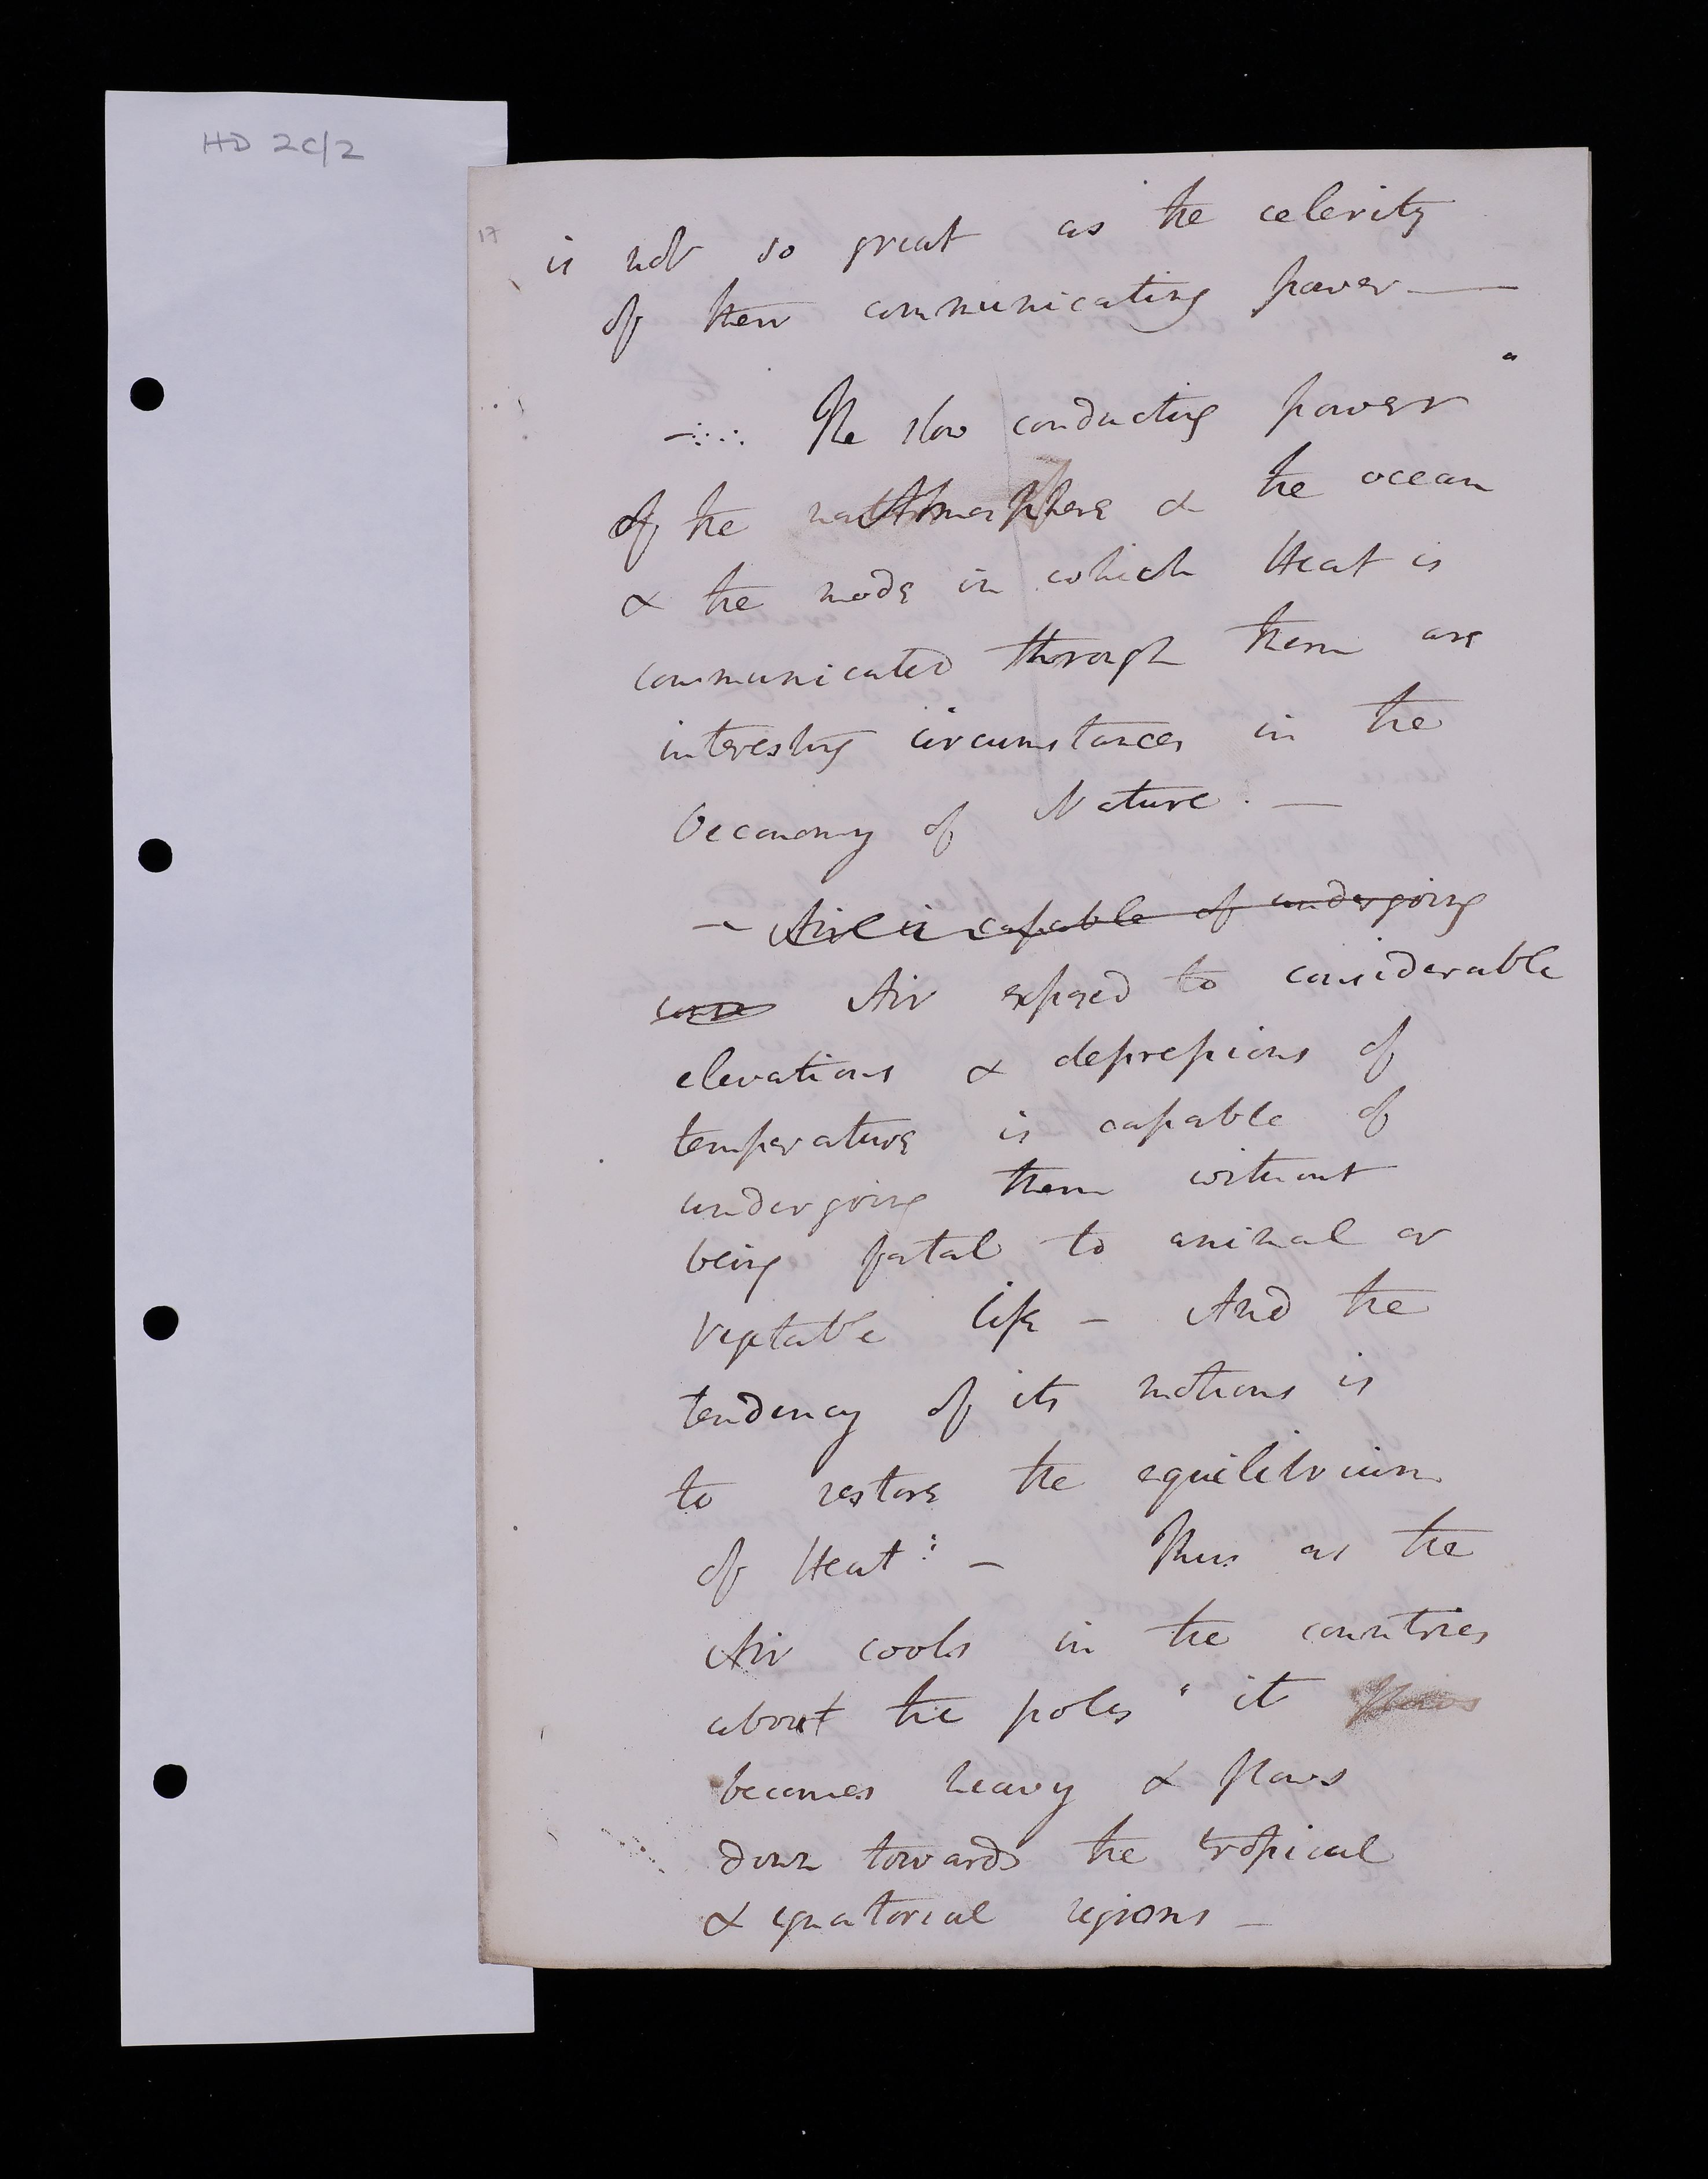 HD 2C/2
17
is not so great as the celerity
of their communicating power —
-:∴ The slow conducting power
of the Atmosphere & the ocean
& the mode in which Heat is
communicated through them are
interesting circumstances in the
Oeconomy of Nature. —
- Air is capable of undergoing
Air exposed to considerable
elevations & depressions of
temperature is capable of
undergoing them without
being fatal to animal or
vegetable life - And the
tendency of its motions is
to restore the equilibrium
of Heat: - Thus as the
Air cools in the countries
about the poles " it flows
becomes heavy & flows
down towards the tropical
& equatorial regions -